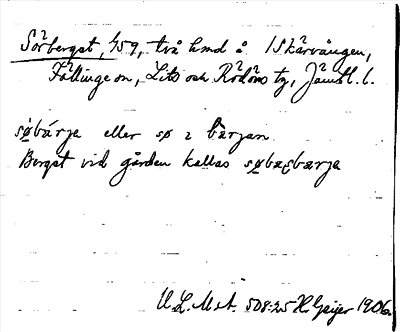 Sörbergst, 459, två hmd å. 1 Skärvången,
Föllinge sn, Lits och Rödöns tg, Jämtl. l.
søbárja eller sø 2 bàrjan.
Bergst vid gården kallas søbæ bærja
U.L.M.A. 508:25 H. Geijer 1906.